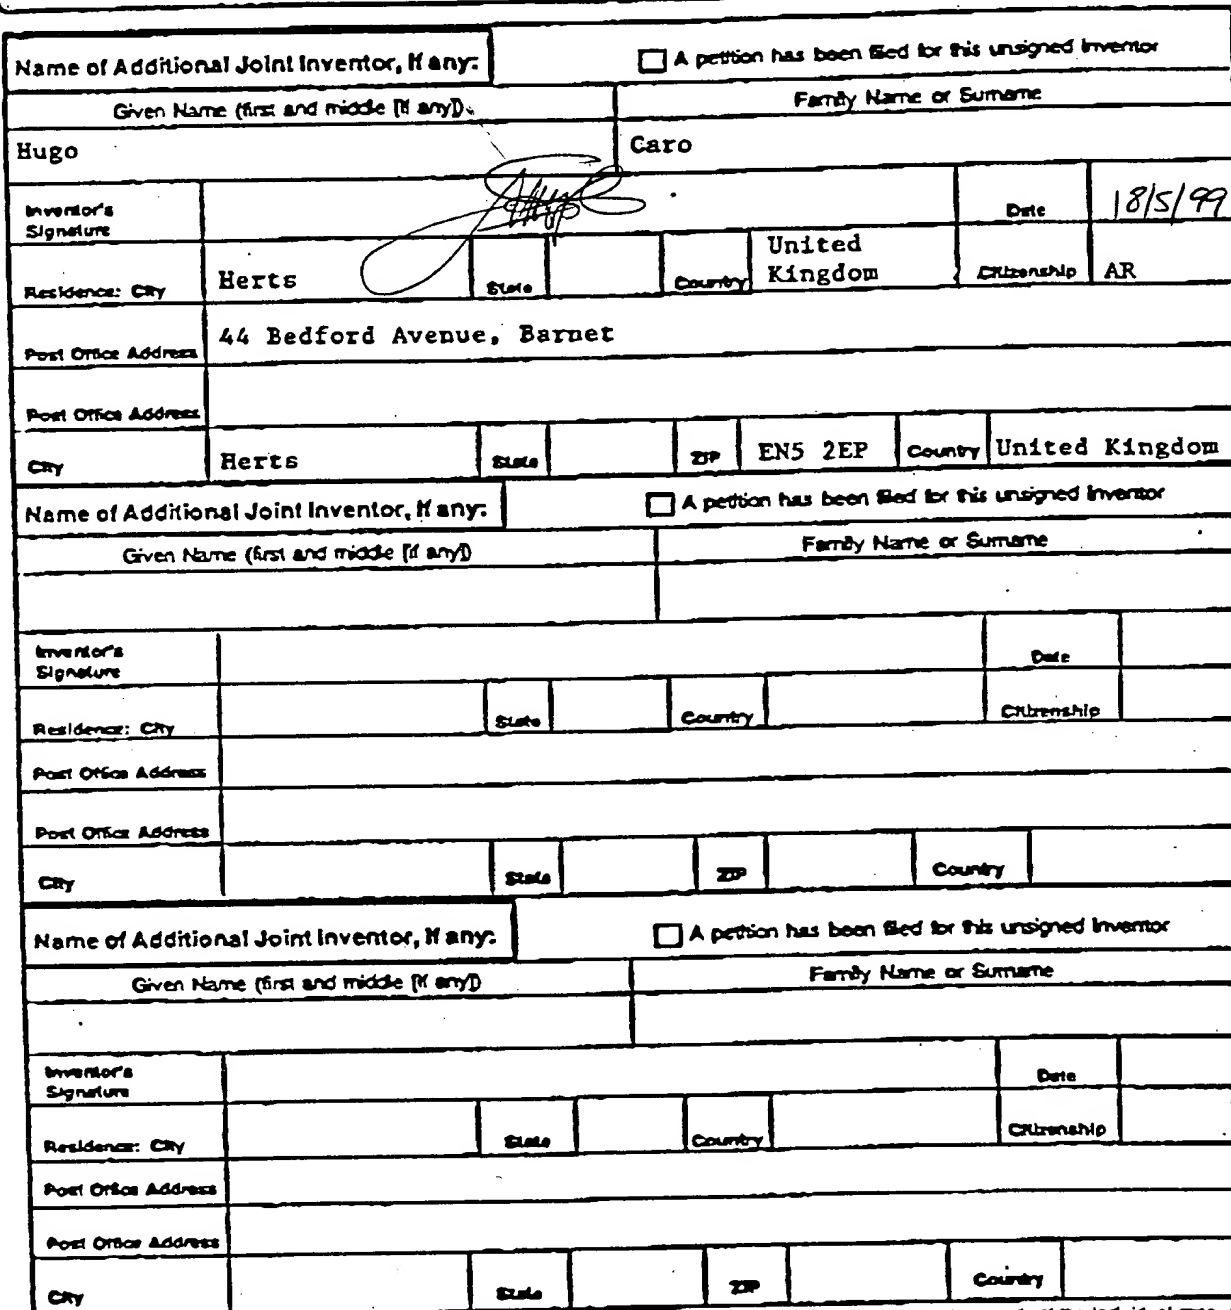 Name of Additional Joint Inventor, if any:
A petition has been filed for this unsigned inventor
Given Name (first and middle [if any])
Family Name or Surname
Hugo
Caro
Inventor's
Signature
Date
18/5/99
Residence: City
Herts
State
Country
United
Kingdom
Citizenship
AR
Post Office Address
44 Bedford Avenue, Barnet
Post Office Address
City
Herts
State
ZIP
EN5 2EP
Country
United Kingdom
Name of Additional Joint Inventor, if any:
A petition has been filed for this unsigned inventor
Given Name (first and middle [if any])
Family Name or Surname
Inventor's
Signature
Date
Residence: City
State
Country
Citizenship
Post Office Address
Post Office Address
City
State
ZIP
Country
Name of Additional Joint Inventor, if any:
A petition has been filed for this unsigned inventor
Given Name (first and middle [if any])
Family Name or Surname
Inventor's
Signature
Date
Residence: City
State
Country
Citizenship
Post Office Address
Post Office Address
City
State
ZIP
Country